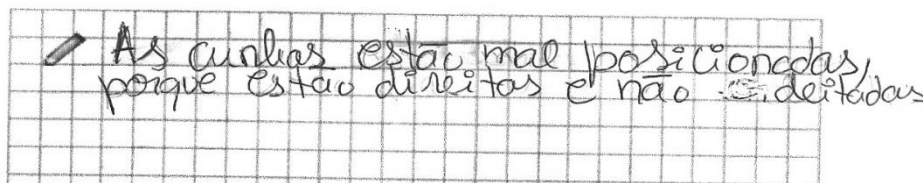 As cunhas estão mal posicionadas,
porque estão direitas e não deitadas